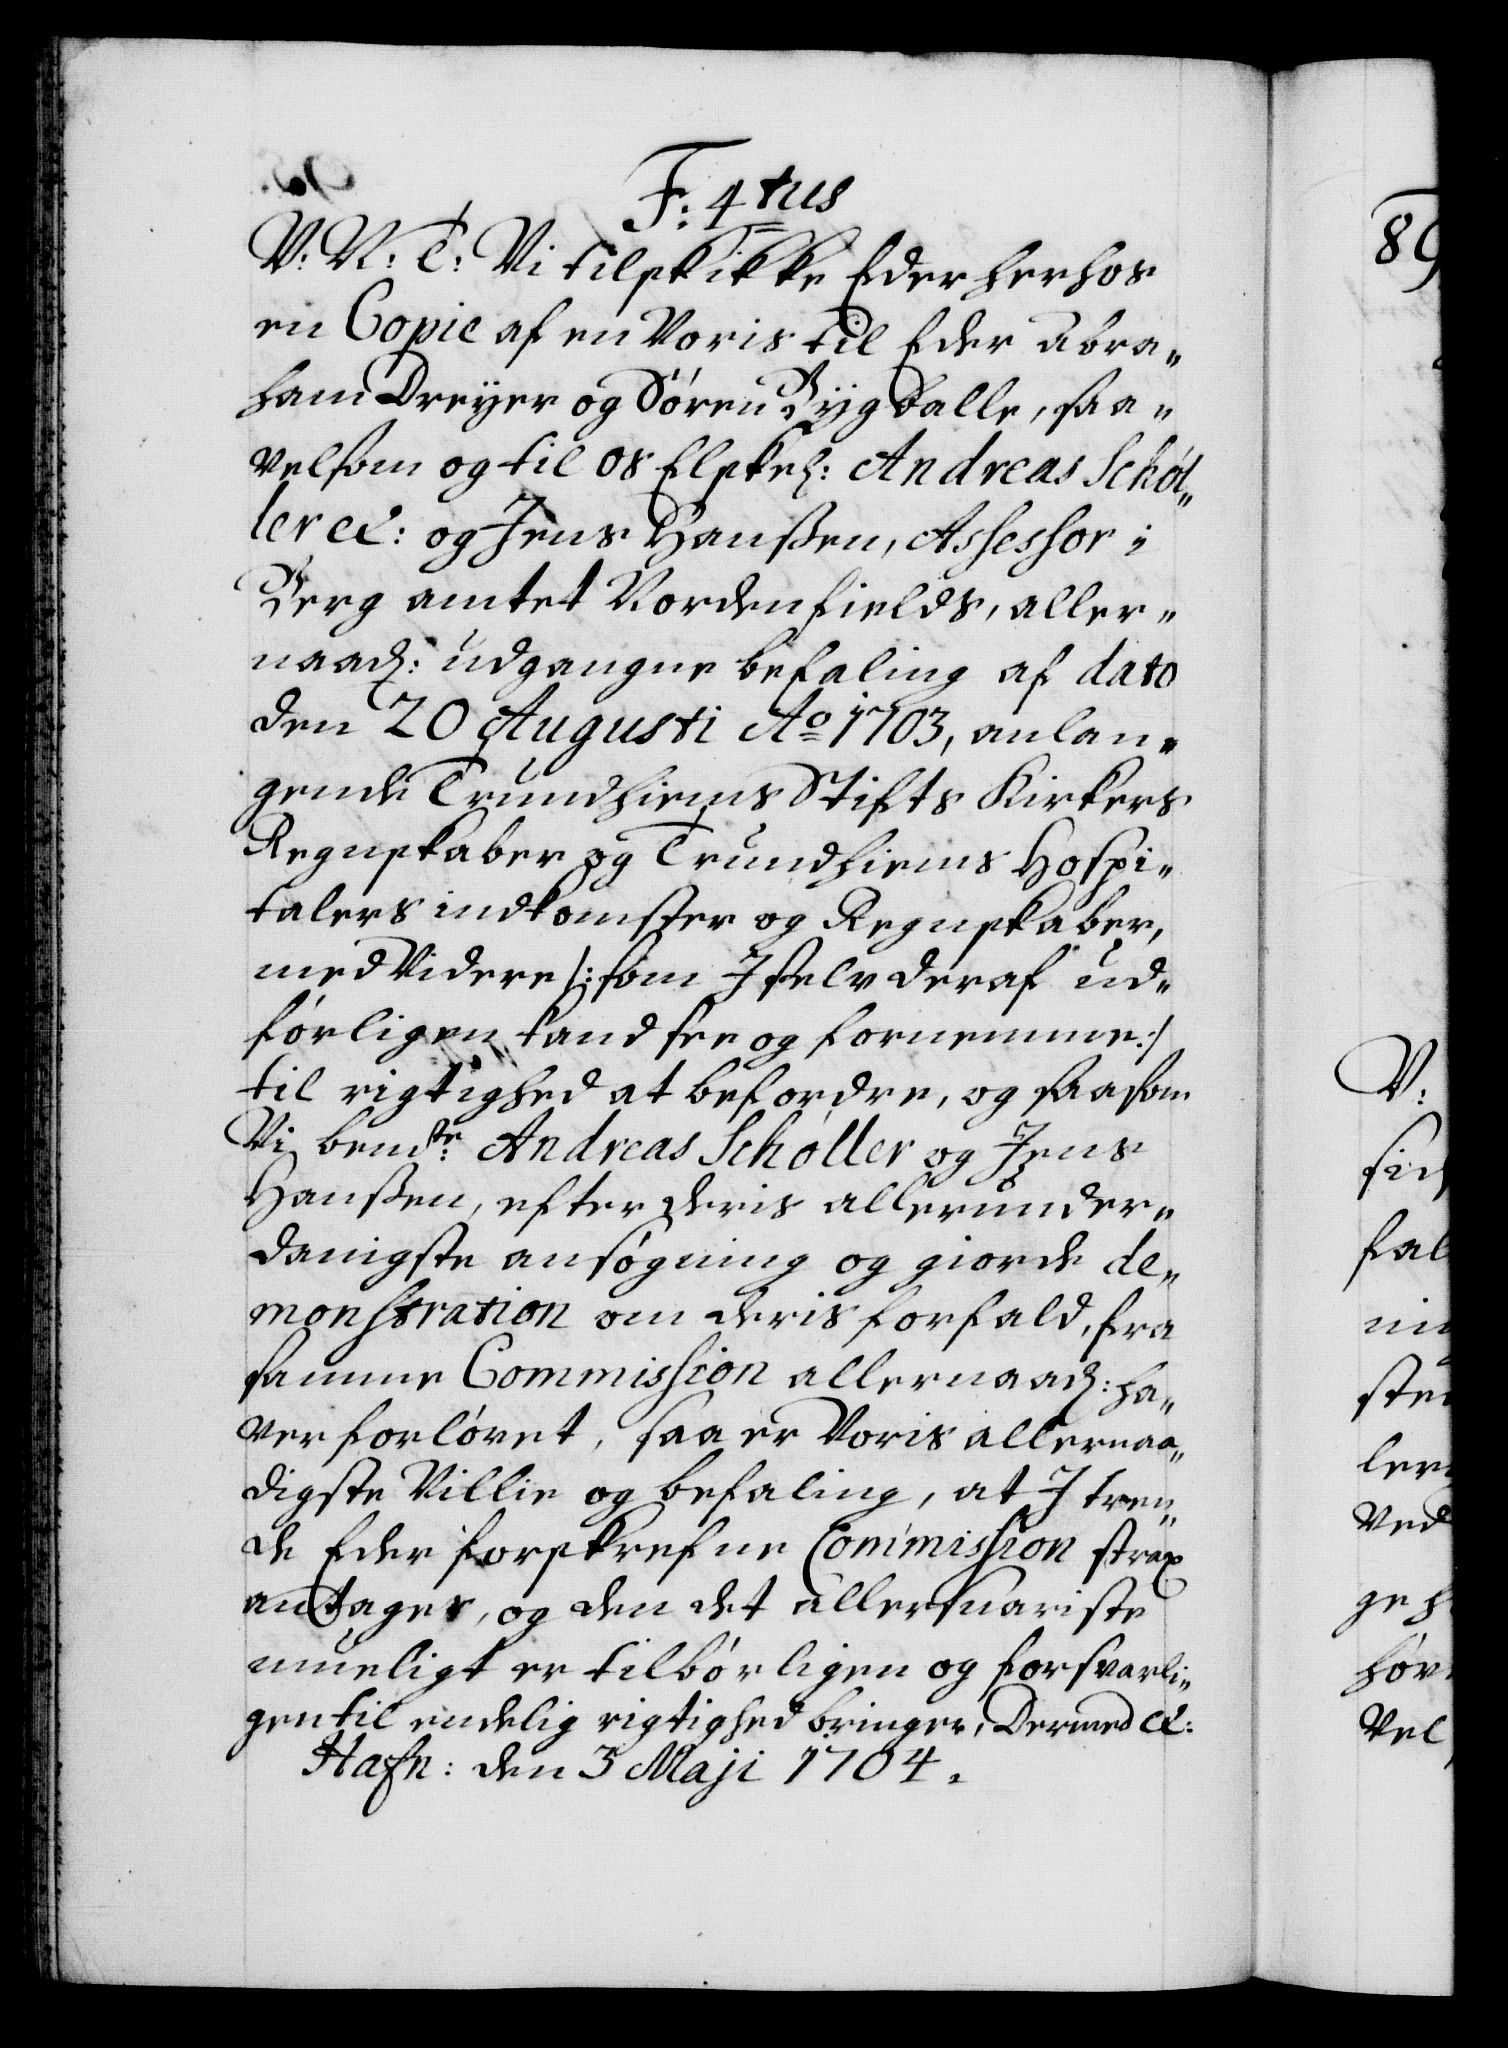 F: 4tus
V: N: T: Vi tilskikke Eder herhos
en Copie af en Voris til Eder Abra„
ham Dreyer og Sören Bygballe, saa„
velsom og til os Elskel: Andreas Schöl„
ler &: og Jens Hanßen, Assessor i
Berg amtet Nordenfields, aller„
naad: udgangne befaling af dato
den 20 Augusti Ao 1703, anlan„
gende Trundhiems Stifts Kirkers
Regnskaber og Trundhiems Hospi„
talers indkomster og Regnskaber,
med Videre /: som I selv deraf ud„
förligen kand see og fornemme :/
til rigtighed at befordre, og saasom
Vi bemte: Andreas Schöller og Jens
Hanßen, efter deris allerunder„
danigste ansögning og giorde de„
monstration om deris forfald, fra
samme Commission allernaad: ha„
ver forlövet, saa er Voris allernaa„
digste Villie og befaling, at I tven„
de Eder forskrefne Commission strax
andtager, og den det allersnariste
mueligt er tilbörligen og forsvarli„
gen til endelig rigtighed bringer, Dermed &:
Hafn: den 3 Maji 1704.
89
V:
fal
ler
Ved
ge h
Vel